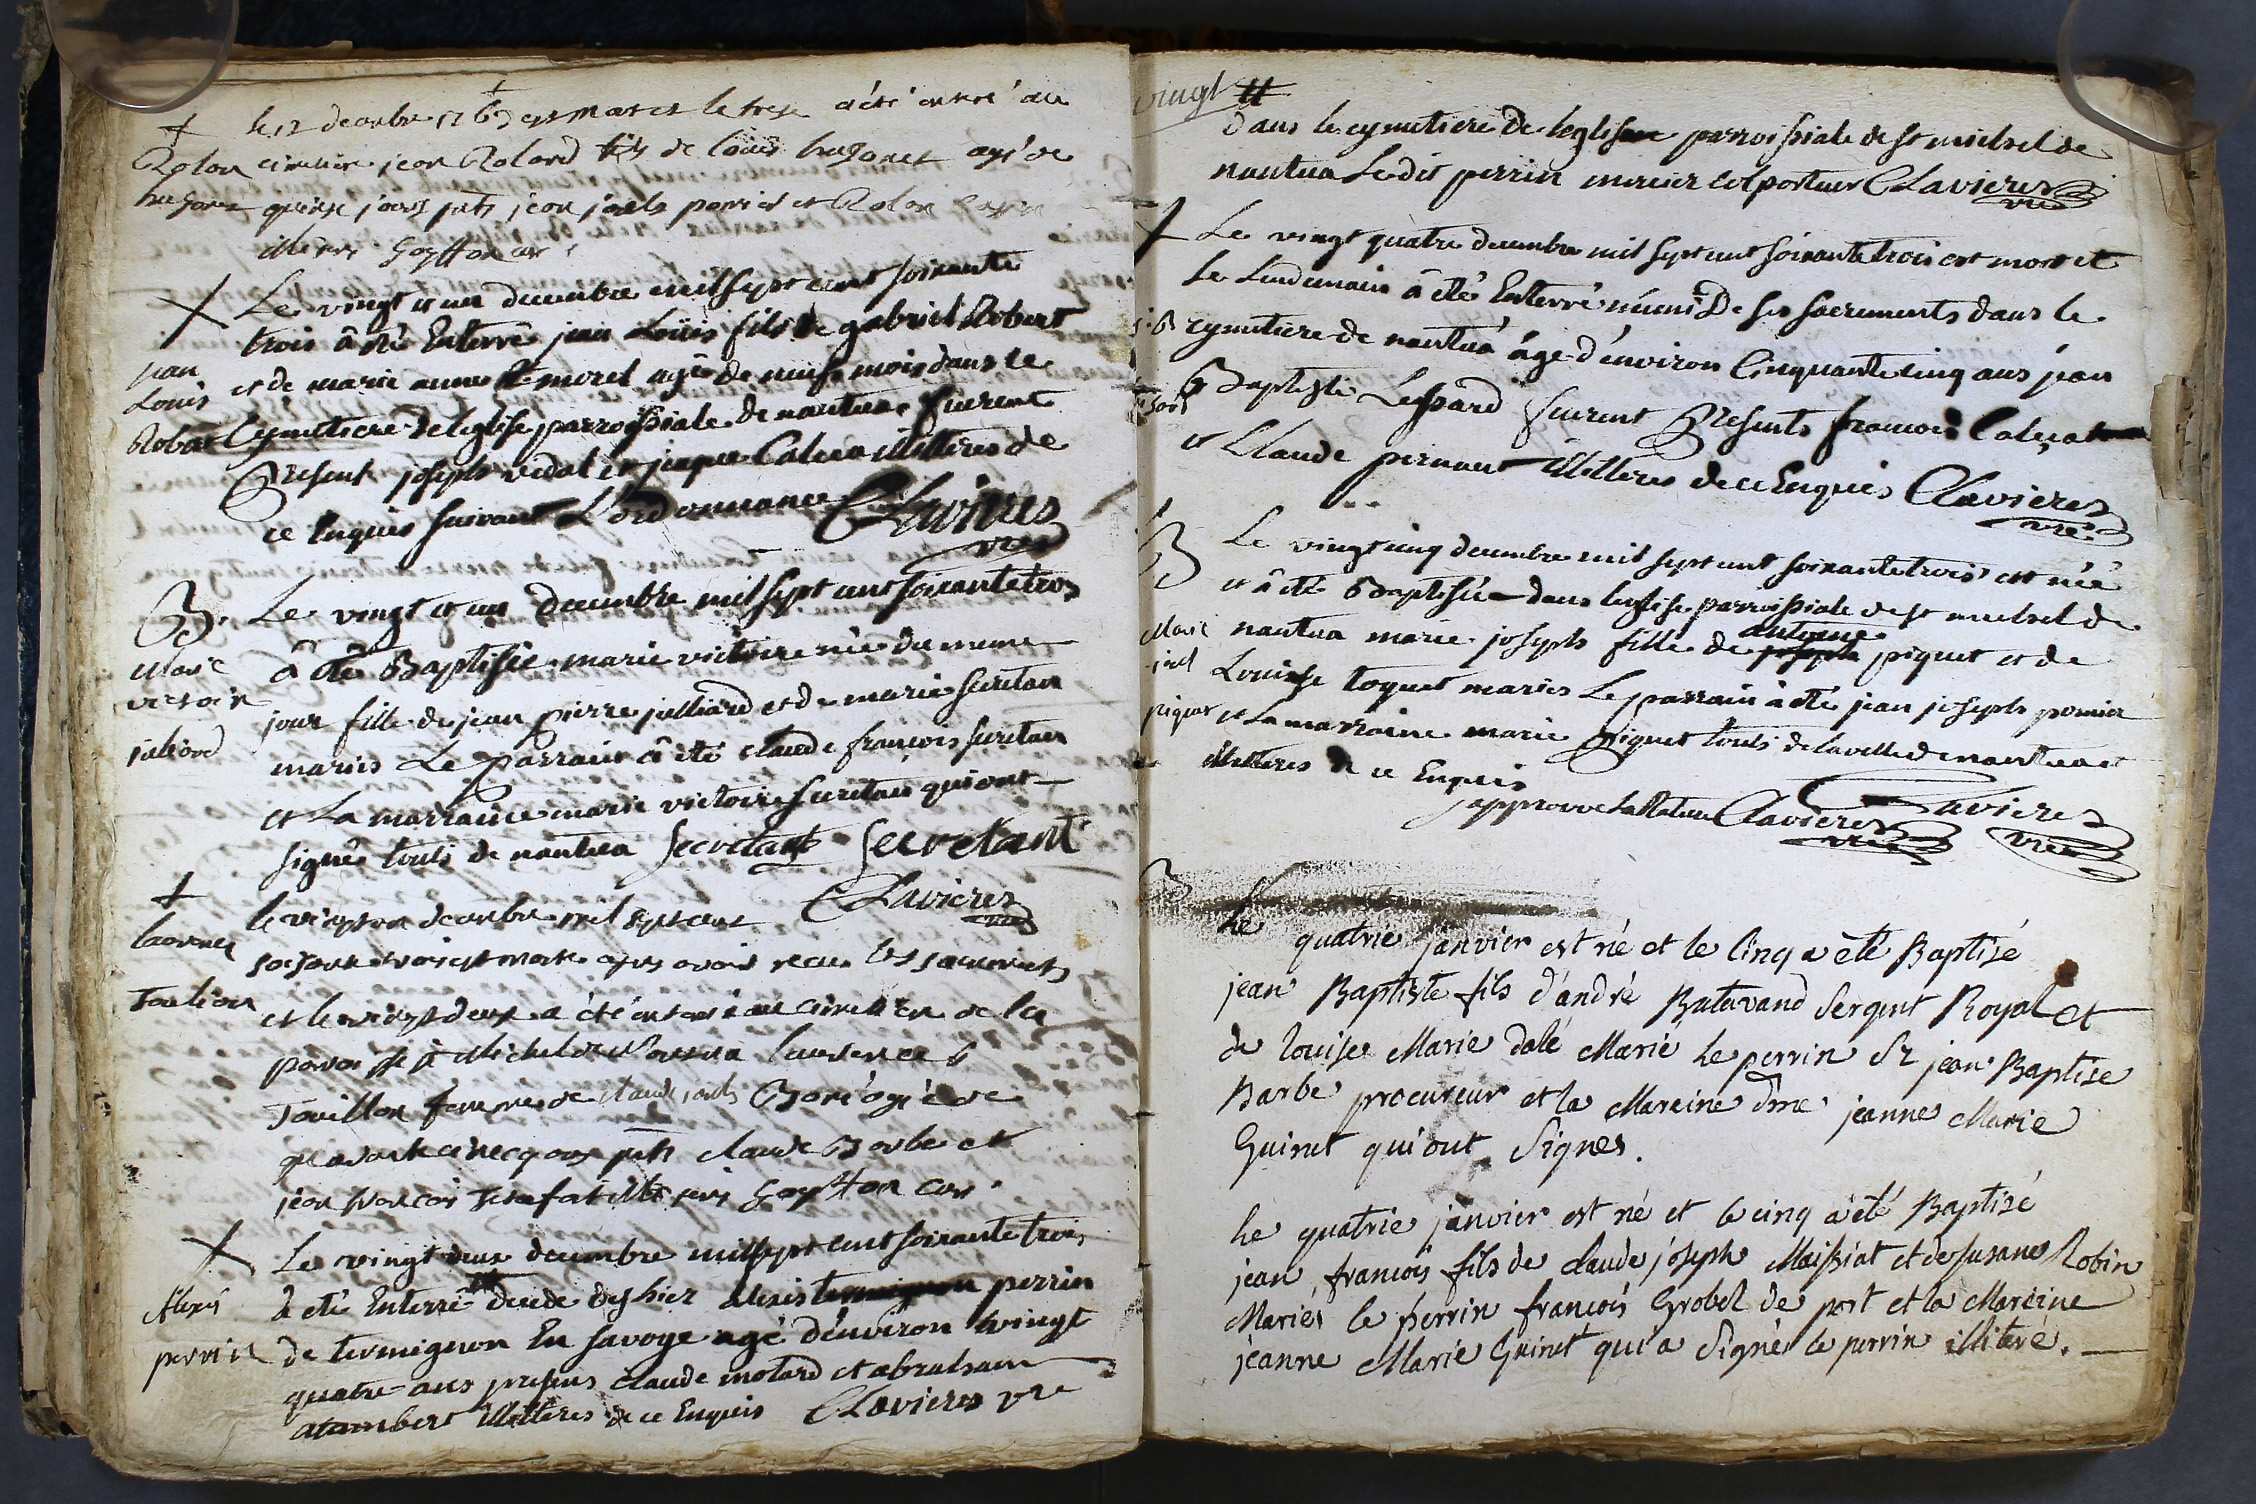 le 12 decembre 1763 est mort et le treze a été enterré au
cimetier jean Roland fils de Louis hugonet agé de
quinze jours pnts jean
illiteres Goyffon
Rolan
hugonet
Le vingt et un decembre mil sept cent soixante
trois â eté Enterré jean Loüis fils de gabriel Robert
et de marie anne morel agé de neuf mois dans le
Cymetiere de leglise parroissiale de nantua furent
Presents joseph vidal et jaque Calcea illitteres de
ce Enquis suivant L'ordonnance Clavieres
vre
jean
Louis
Robar
B. Le vingt et un decembre mil sept cent soixante trois
â eté Baptisée marie victoire née du meme
jour fille de jean pierre julliard et de marie secretan
mariés Le parrain â eté claude françois secretan
et La marraine marie victoire secretan qui ont
signés touts de nantua Secretant Secretant
Clavieres
vre
Marie
victoir
juliard
le vingt un decembre mil sept cent
soixante trois est morte apres avoir recu les sacrements
et le vingt deux a été enterré au cimetiere de la
paroisse st Michel de Nantua laurence
Touillon femme de claude joseph Boné agé de
quarante cinq ans pnts claude Barbe et
jean francois illiteres Goyffon
laurence
Toulion
Le vingt deux decembre mil sept cent soixante trois
à eté Enterré decede des hier alexis termignon perrin
de termignon En savoye agé d'environ vingt
quatre ans presens claude motard et abraham
atambert illitteres de ce Enquis Clavieres vre
Alexis
perrin
vingt
dans le cymetiere de leglise parroissiale de st michel de
nantua Ledit perrin mercier colporteur Clavieres
vre
Le vingt quatre decembre mil sept cent soixante trois est mort et
Le Lendemain â eté Enterré muni De ses sacrements dans le
cymetiere de nantua âge d'environ Cinquante cinq ans jean
Baptiste Lessard furent Presents francois Calça
et Claude pernaut illitteres de ce Enquis Clavieres
vre
B Le vingt cinq decembre mil sept cent soixante trois est née
et â eté Baptisée dans leglise parroissiale de st michel de
nantua marie joseph fille de joseph antoine piquet et de
Louise toquet mariés Le parrain à eté jean joseph pernier
et La marraine marie piquet touts de la ville de nantua et
illitteres de ce Enquis
approuve La Rature Clavieres Clavieres
vre vre
Marie
piquet
B
Le quatrie janvier est né et le cinq a êté Baptisé
jean Baptiste fils d'andré Butavand sergent Royal et
de louise Marie dalé Marié le perrin Sr jean Baptise
Barbe procureur et la Mareine dme jeanne Marie
Guinet qui ont signés.
Le quatrie janvier est né et le cinq a êté Baptisé
jean francois fils de claude joseph Maissiat et de susane Robin
Mariés le perrin francois Grobel de port et la Mareine
jeanne Marie Guinet qui a signé le perrin illiteré.